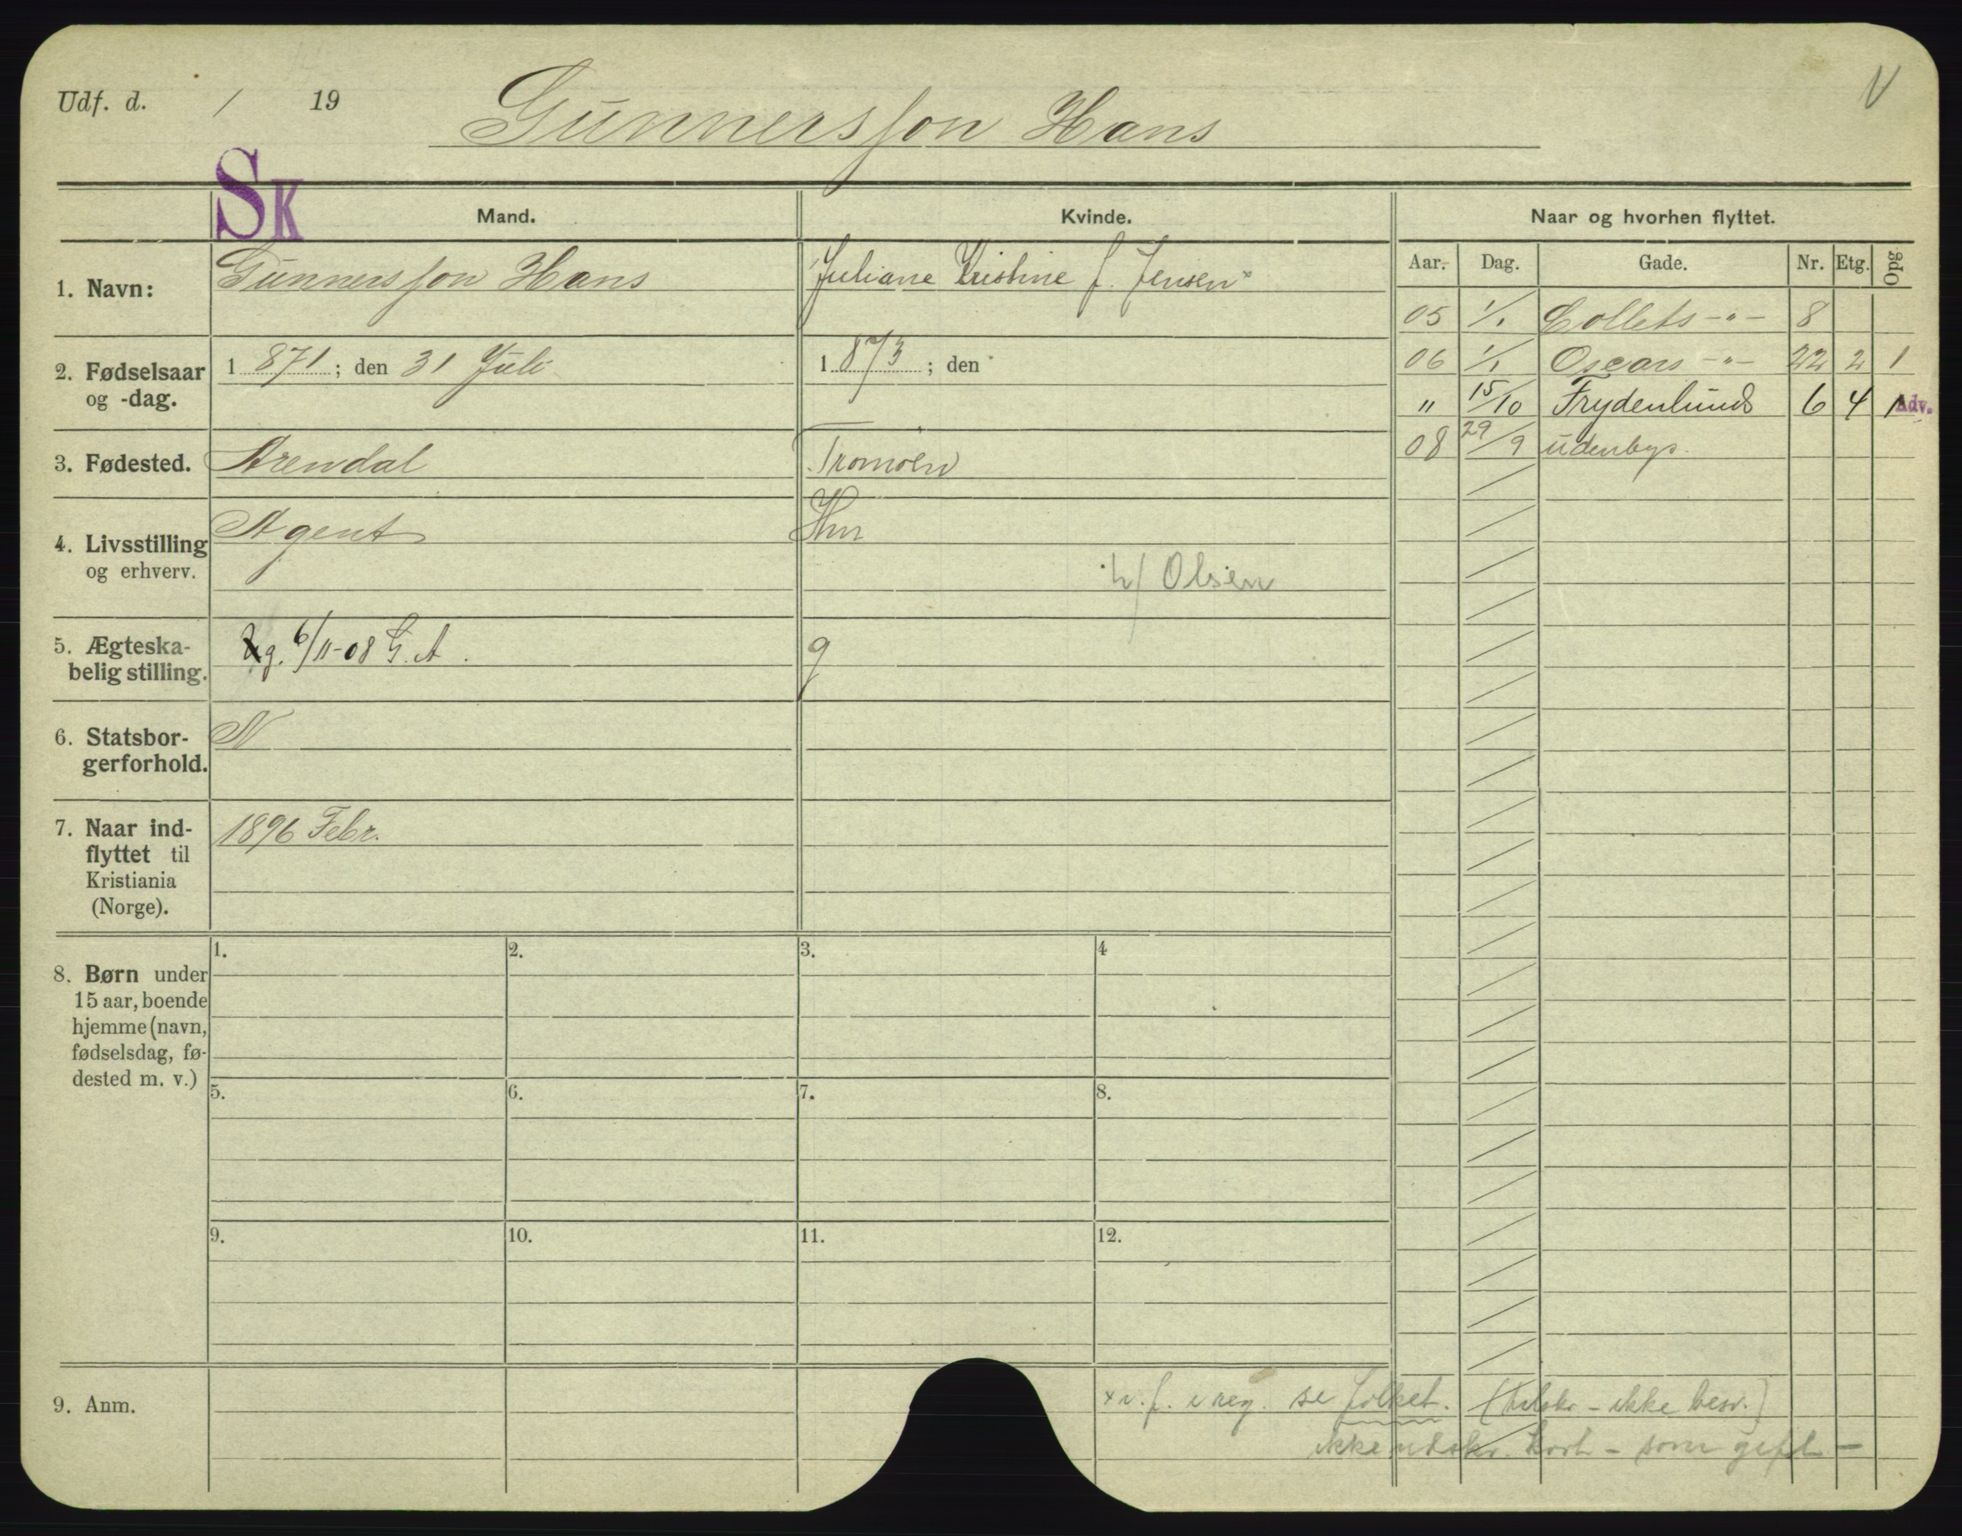 Udf. d. / 19
Gunnersson Hans
V
SK
Mand.
Kvinde.
Naar og hvorhen flyttet.
Aar. Dag. Gade. Nr. Etg. Opg
1. Navn:
Gunnersson Hans
Juliane Kristine f. Jensen x
05 1/1 Collets -"- 8
2. Fødselsaar
og -dag.
1871; den 31 Juli
1873; den
06 1/1 Oscars -"- 22 2 1
" 15/10 Frydenlunds 6 4 1 Adv.
08 29/9 udenbys.
3. Fødested.
Arendal
Tromøen
4. Livsstilling
og erhverv.
Agent
Hm
h/ Olsen
5. Ægteska-
belig stilling.
g. 6/11-08 G. A.
g
6. Statsbor-
gerforhold.
N
7. Naar ind-
flyttet til
Kristiania
(Norge).
1896 Febr.
8. Børn under
15 aar, boende
hjemme (navn,
fødselsdag, fø-
dested m. v.)
1. 2. 3. 4
5. 6. 7. 8.
9. 10. 11. 12.
9. Anm.
x v. f. i reg. se folket. (tilskr - ikke besv.)
ikke utskr. kort - som gift -